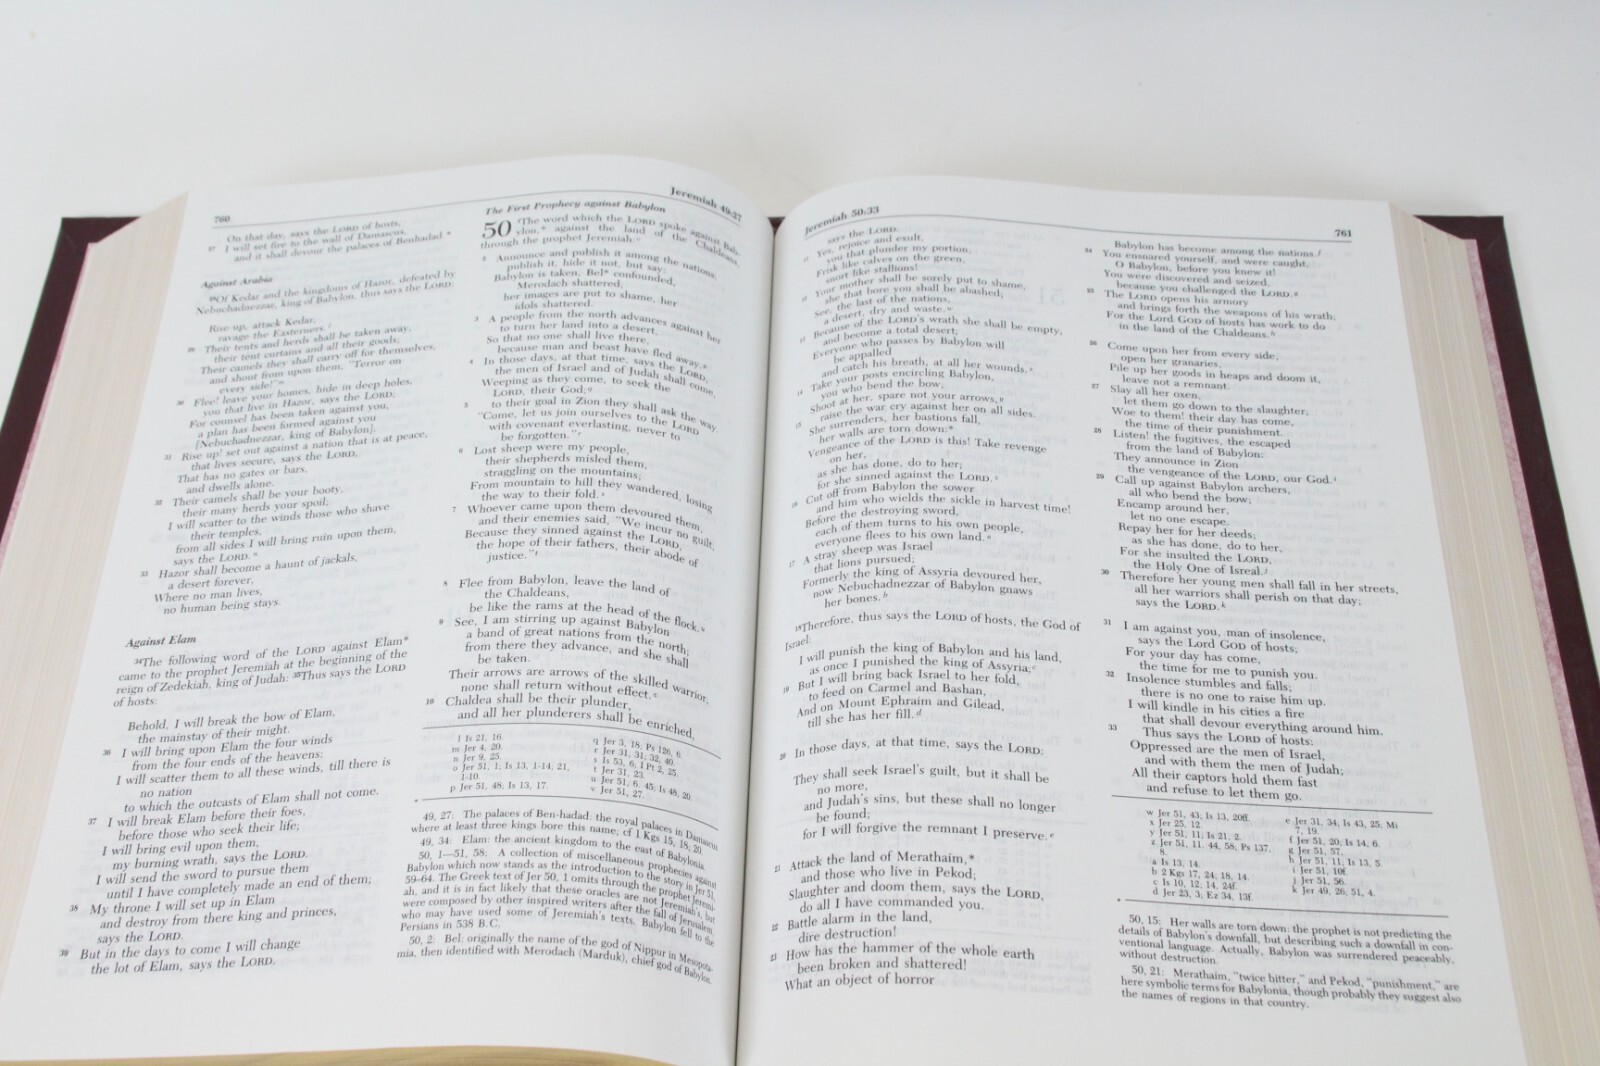 760
Jeremiah 49:37
On that day, says the LORD of hosts,
27 I will set fire to the wall of Damascus,
and it shall devour the palaces of Benhadad.*
Against Arabia
28Of Kedar and the kingdoms of Hazor, defeated by
Nebuchadnezzar, king of Babylon, thus says the LORD:
Rise up, attack Kedar,
ravage the Easterners.
29 Their tents and herds shall be taken away,
their tent curtains and all their goods;
Their camels they shall carry off for themselves,
and shout from upon them, "Terror on
every side!"m
30 Flee! leave your homes, hide in deep holes,
you that live in Hazor, says the LORD;
For counsel has been taken against you,
a plan has been formed against you
[Nebuchadnezzar, king of Babylon].
31 Rise up! set out against a nation that is at peace,
that lives secure, says the LORD,
That has no gates or bars,
and dwells alone.
32 Their camels shall be your booty,
their many herds your spoil;
I will scatter to the winds those who shave
their temples,
from all sides I will bring ruin upon them,
says the LORD.n
33 Hazor shall become a haunt of jackals,
a desert forever,
Where no man lives,
no human being stays.
Against Elam
34The following word of the LORD against Elam*
came to the prophet Jeremiah at the beginning of the
reign of Zedekiah, king of Judah: 35Thus says the LORD
of hosts:
Behold, I will break the bow of Elam,
the mainstay of their might.
36 I will bring upon Elam the four winds
from the four ends of the heavens:
I will scatter them to all these winds, till there is
no nation
to which the outcasts of Elam shall not come.
37 I will break Elam before their foes,
before those who seek their life;
I will bring evil upon them,
my burning wrath, says the LORD.
I will send the sword to pursue them
until I have completely made an end of them;
38 My throne I will set up in Elam
and destroy from there king and princes,
says the LORD.
39 But in the days to come I will change
the lot of Elam, says the LORD.
The First Prophecy against Babylon
50 The word which the LORD spoke against Bab-
ylon,* against the land of the Chaldeans,
through the prophet Jeremiah:
2 Announce and publish it among the nations;
publish it, hide it not, but say:
Babylon is taken, Bel* confounded,
Merodach shattered;
her images are put to shame, her
idols shattered.
3 A people from the north advances against her
to turn her land into a desert,
So that no one shall live there,
because man and beast have fled away.
4 In those days, at that time, says the LORD,
the men of Israel and of Judah shall come,
Weeping as they come, to seek the
LORD, their God;q
5 to their goal in Zion they shall ask the way.
"Come, let us join ourselves to the LORD
with covenant everlasting, never to
be forgotten."r
6 Lost sheep were my people,
their shepherds misled them,
straggling on the mountains;
From mountain to hill they wandered, losing
the way to their fold.s
7 Whoever came upon them devoured them,
and their enemies said, "We incur no guilt,
Because they sinned against the LORD,
the hope of their fathers, their abode of
justice."t
8 Flee from Babylon, leave the land of
the Chaldeans,
be like the rams at the head of the flock.u
9 See, I am stirring up against Babylon
a band of great nations from the north;
from there they advance, and she shall
be taken.
Their arrows are arrows of the skilled warrior,
none shall return without effect.v
10 Chaldea shall be their plunder,
and all her plunderers shall be enriched,
l Is 21, 16.
m Jer 4, 20.
n Jer 9, 25.
o Jer 51, 1; Is 13, 1-14, 21,
1-10.
p Jer 51, 48; Is 13, 17.
q Jer 3, 18; Ps 126, 6.
r Jer 31, 31; 32, 40.
s Is 53, 6; 1 Pt 2, 25.
t Jer 31, 23.
u Jer 51, 6. 45; Is 48, 20.
v Jer 51, 27.
49, 27: The palaces of Ben-hadad: the royal palaces in Damascus
where at least three kings bore this name; cf 1 Kgs 15, 18; 20.
49, 34: Elam: the ancient kingdom to the east of Babylonia.
50, 1—51, 58: A collection of miscellaneous prophecies against
Babylon which now stands as the introduction to the story in Jer 51,
59-64. The Greek text of Jer 50, 1 omits through the prophet Jeremi-
ah, and it is in fact likely that these oracles are not Jeremiah's, but
were composed by other inspired writers after the fall of Jerusalem,
who may have used some of Jeremiah's texts. Babylon fell to the
Persians in 538 B.C.
50, 2: Bel: originally the name of the god of Nippur in Mesopota-
mia, then identified with Merodach (Marduk), chief god of Babylon.
Jeremiah 50:33
761
says the LORD.
11 Yes, rejoice and exult,
you that plunder my portion,
Frisk like calves on the green,
snort like stallions!
12 Your mother shall be sorely put to shame,
she that bore you shall be abashed;
See, the last of the nations,
a desert, dry and waste.w
13 Because of the LORD's wrath she shall be empty,
and become a total desert;
Everyone who passes by Babylon will
be appalled
and catch his breath, at all her wounds.x
14 Take your posts encircling Babylon,
you who bend the bow,
Shoot at her, spare not your arrows,y
15 raise the war cry against her on all sides.
She surrenders, her bastions fall,
her walls are torn down:*
Vengeance of the LORD is this! Take revenge
on her,
as she has done, do to her;
for she sinned against the LORD.z
16 Cut off from Babylon the sower
and him who wields the sickle in harvest time!
Before the destroying sword,
each of them turns to his own people,
everyone flees to his own land.a
17 A stray sheep was Israel
that lions pursued;
Formerly the king of Assyria devoured her,
now Nebuchadnezzar of Babylon gnaws
her bones.b
18Therefore, thus says the LORD of hosts, the God of
Israel:
I will punish the king of Babylon and his land,
as once I punished the king of Assyria;c
19 But I will bring back Israel to her fold,
to feed on Carmel and Bashan,
And on Mount Ephraim and Gilead,
till she has her fill.d
20 In those days, at that time, says the LORD:
They shall seek Israel's guilt, but it shall be
no more,
and Judah's sins, but these shall no longer
be found;
for I will forgive the remnant I preserve.e
21 Attack the land of Merathaim,*
and those who live in Pekod;
Slaughter and doom them, says the LORD,
do all I have commanded you.
22 Battle alarm in the land,
dire destruction!
23 How has the hammer of the whole earth
been broken and shattered!
What an object of horror
Babylon has become among the nations.f
24 You ensnared yourself, and were caught,
O Babylon, before you knew it!
You were discovered and seized,
because you challenged the LORD.g
25 The LORD opens his armory
and brings forth the weapons of his wrath;
For the Lord GOD of hosts has work to do
in the land of the Chaldeans.h
26 Come upon her from every side,
open her granaries,
Pile up her goods in heaps and doom it,
leave not a remnant.
27 Slay all her oxen,
let them go down to the slaughter;
Woe to them! their day has come,
the time of their punishment.
28 Listen! the fugitives, the escaped
from the land of Babylon:
They announce in Zion
the vengeance of the LORD, our God.i
29 Call up against Babylon archers,
all who bend the bow;
Encamp around her,
let no one escape.
Repay her for her deeds;
as she has done, do to her,
For she insulted the LORD,
the Holy One of Isreal.j
30 Therefore her young men shall fall in her streets,
all her warriors shall perish on that day;
says the LORD.k
31 I am against you, man of insolence,
says the Lord GOD of hosts;
For your day has come,
the time for me to punish you.
32 Insolence stumbles and falls;
there is no one to raise him up.
I will kindle in his cities a fire
that shall devour everything around him.
33 Thus says the LORD of hosts:
Oppressed are the men of Israel,
and with them the men of Judah;
All their captors hold them fast
and refuse to let them go.
w Jer 51, 43; Is 13, 20ff.
x Jer 25, 12.
y Jer 51, 11; Is 21, 2.
z Jer 51, 11. 44, 58; Ps 137,
8.
a Is 13, 14.
b 2 Kgs 17, 24; 18, 14.
c Is 10, 12; 14, 24f.
d Jer 23, 3; Ez 34, 13f.
e Jer 31, 34; Is 43, 25; Mi
7, 19.
f Jer 51, 20; Is 14, 6.
g Jer 51, 57.
h Jer 51, 11; Is 13, 5.
i Jer 51, 10f.
j Jer 51, 56.
k Jer 49, 26; 51, 4.
50, 15: Her walls are torn down: the prophet is not predicting the
details of Babylon's downfall, but describing such a downfall in con-
ventional language. Actually, Babylon was surrendered peaceably,
without destruction.
50, 21: Merathaim, "twice bitter," and Pekod, "punishment," are
here symbolic terms for Babylonia, though probably they suggest also
the names of regions in that country.